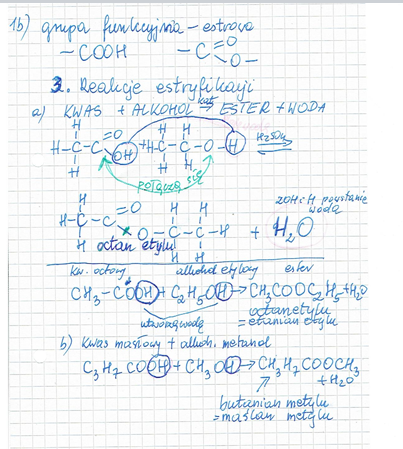 1b) grupa funkcyjna – estrowa
–COOH –C=O O–
3. Reakcje estryfikacji
a) KWAS + ALKOHOL kat ⇌ ESTER + WODA
H H H
H–C–C=O OH + H–C–C–O–H H₂SO₄ ⇌
H H H
połączą się
z OH i H powstanie wodą
H H H
H–C–C=O O–C–C–H + H₂O
H H H
octan etylu
kw. octowy alkohol etylowy ester
CH₃–COOH + C₂H₅OH → CH₃COOC₂H₅ + H₂O
utworzą wodę
octan etylu
= etanian etylu
b) kwas masłowy + alkoh. metanol
C₃H₇COOH + CH₃OH → C₃H₇COOCH₃
+ H₂O
butanian metylu
= maślan metylu